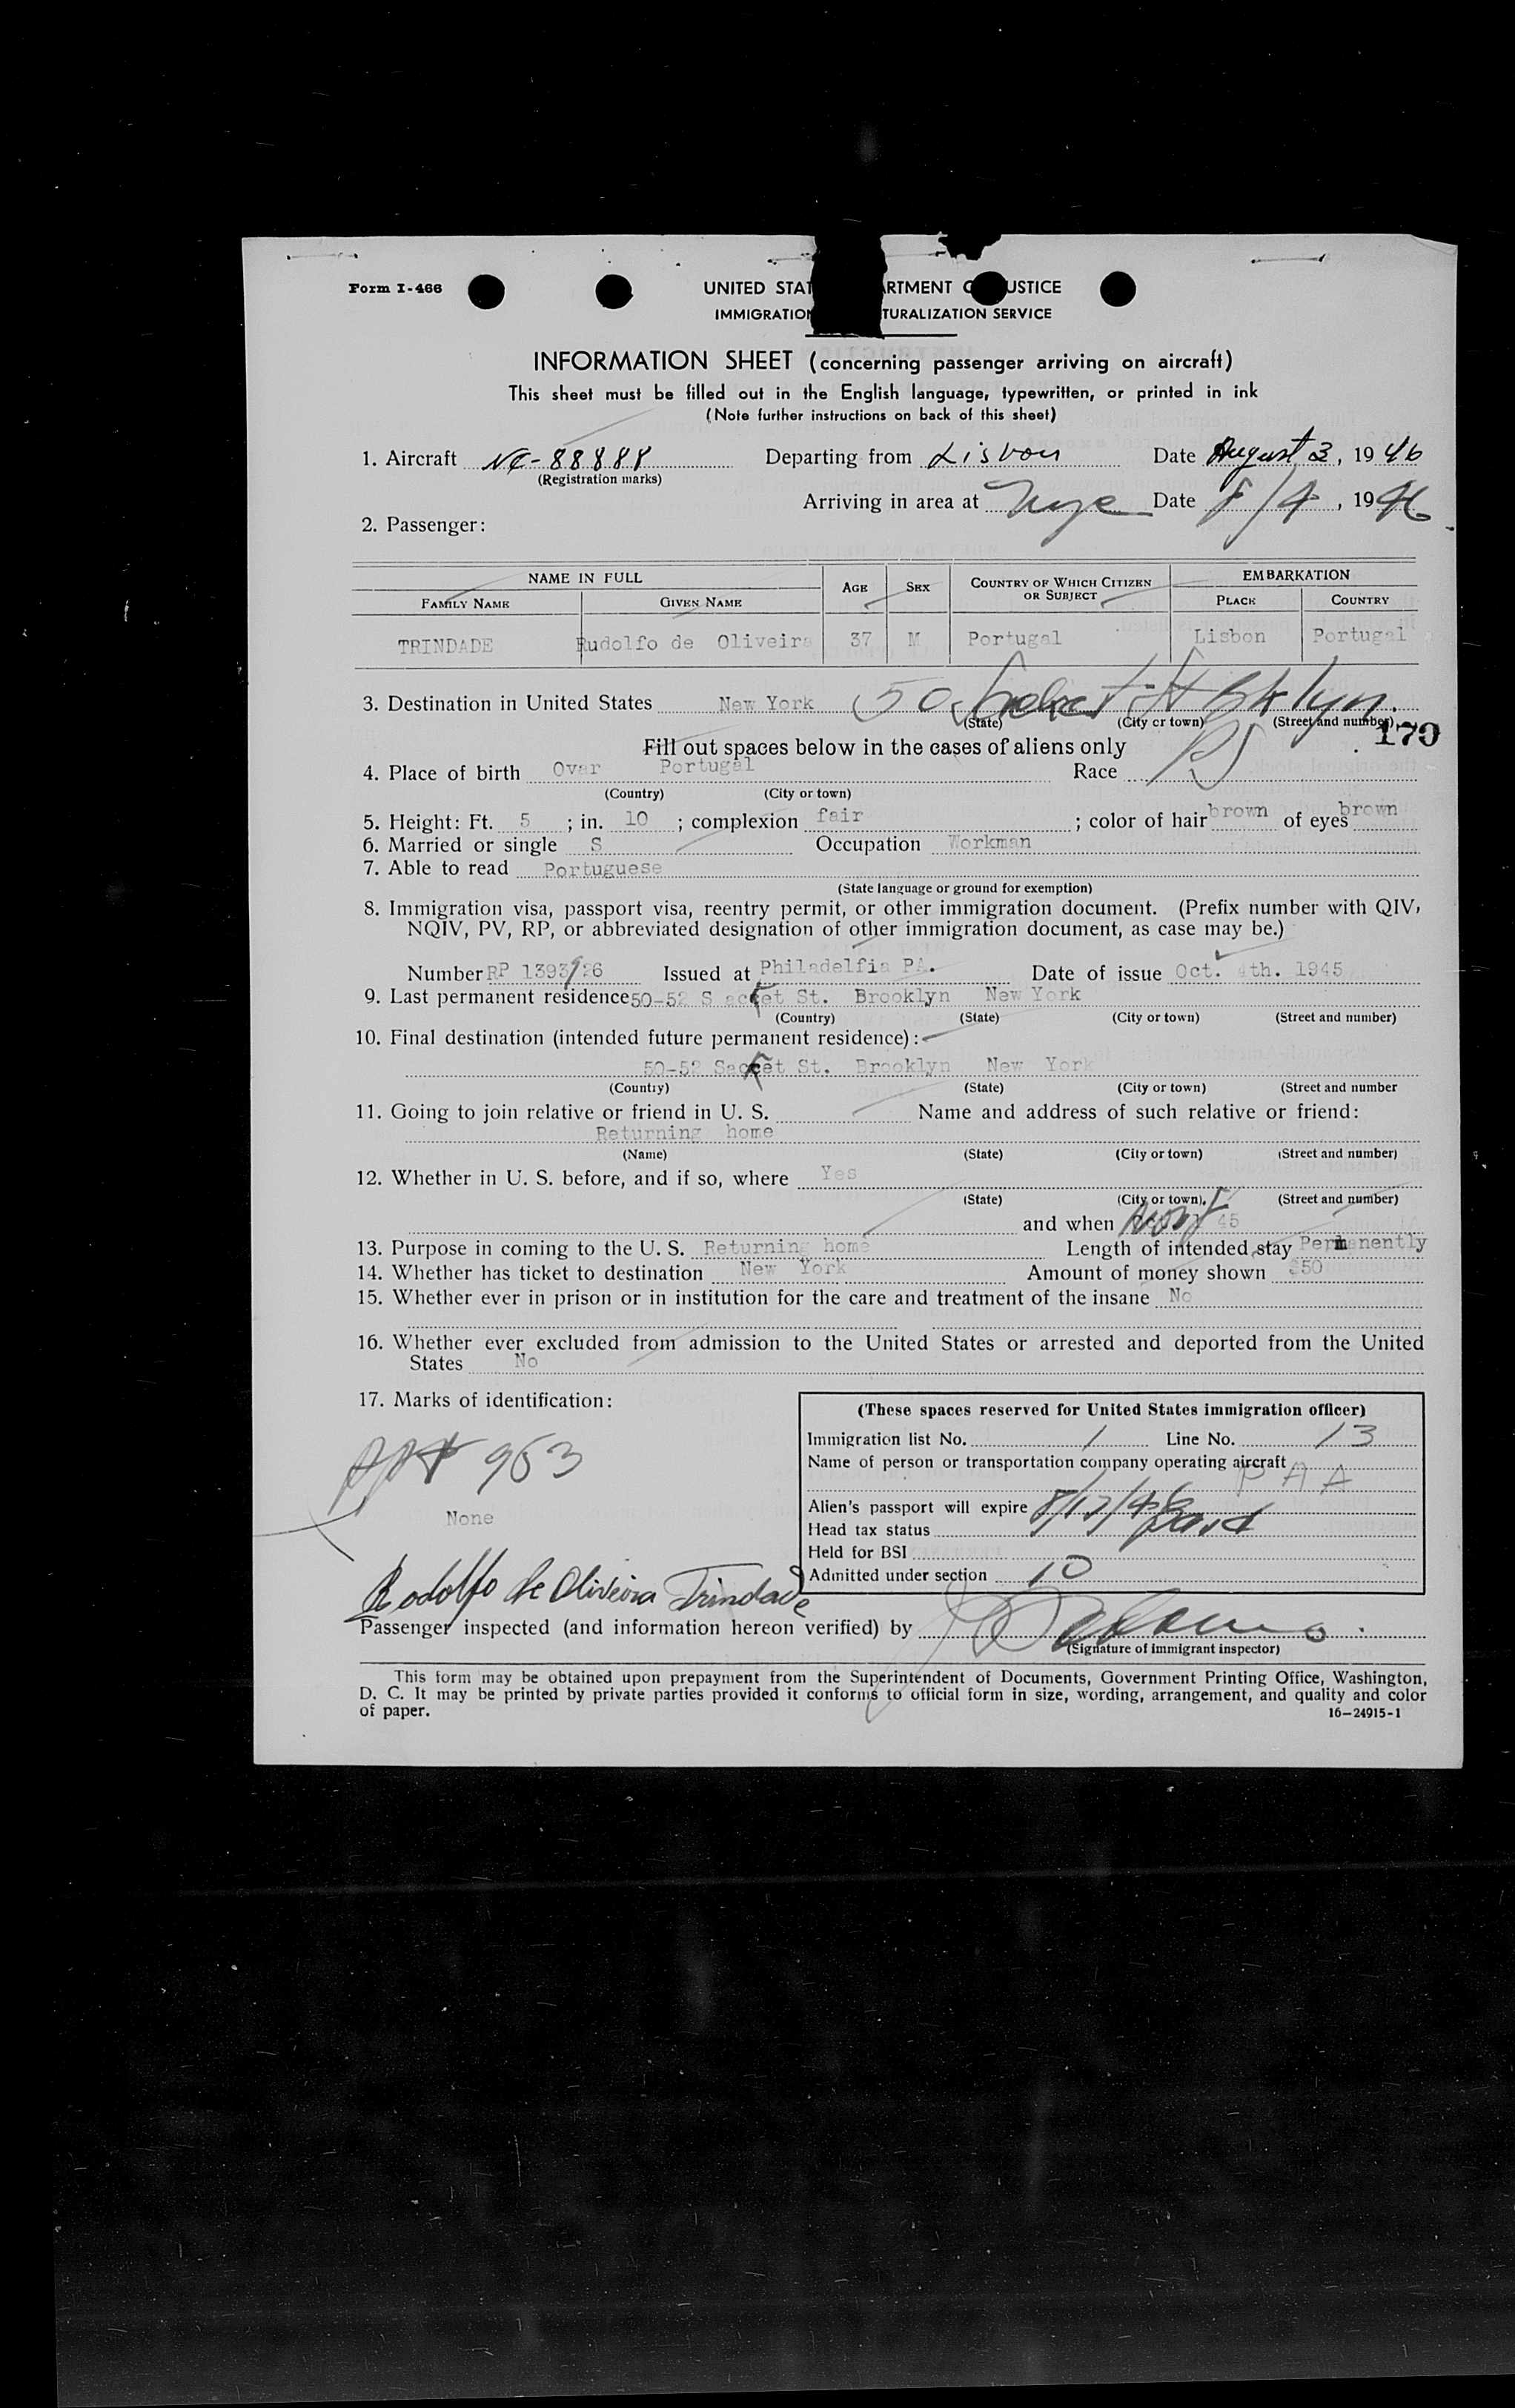 Form I-466
UNITED STAT RTMENT O USTICE
IMMIGRATIO TURALIZATION SERVICE
INFORMATION SHEET (concerning passenger arriving on aircraft)
This sheet must be filled out in the English language, typewritten, or printed in ink
(Note further instructions on back of this sheet)
1. Aircraft NC-88888 Departing from Lisbon Date August 3, 1946
(Registration marks)
Arriving in area at Date 8/4, 1946
2. Passenger:
NAME IN FULL AGE SEX COUNTRY OF WHICH CITIZEN OR SUBJECT EMBARKATION
FAMILY NAME GIVEN NAME PLACE COUNTRY
TRINDADE Rudolfo de Oliveira 37 M Portugal Lisbon Portugal
3. Destination in United States New York 50 St Bklyn.
(State) (City or town) (Street and number)
179
Fill out spaces below in the cases of aliens only
4. Place of birth Ovar Portugal Race
(Country) (City or town)
5. Height: Ft. 5 ; in. 10 ; complexion fair ; color of hair brown of eyes brown
6. Married or single S Occupation Workman
7. Able to read Portuguese
(State language or ground for exemption)
8. Immigration visa, passport visa, reentry permit, or other immigration document. (Prefix number with QIV,
NQIV, PV, RP, or abbreviated designation of other immigration document, as case may be.)
Number RP 1393926 Issued at Philadelfia PA. Date of issue Oct. 4th. 1945
9. Last permanent residence 50-52 Sacket St. Brooklyn New York
(Country) (State) (City or town) (Street and number)
10. Final destination (intended future permanent residence):
50-52 Sacket St. Brooklyn New York
(Country) (State) (City or town) (Street and number
11. Going to join relative or friend in U. S. Name and address of such relative or friend:
Returning home
(Name) (State) (City or town) (Street and number)
12. Whether in U. S. before, and if so, where Yes
(State) (City or town) (Street and number)
and when 45
13. Purpose in coming to the U. S. Returning home Length of intended stay Permanently
14. Whether has ticket to destination New York Amount of money shown $50
15. Whether ever in prison or in institution for the care and treatment of the insane No
16. Whether ever excluded from admission to the United States or arrested and deported from the United
States No
17. Marks of identification:
953
None
(These spaces reserved for United States immigration officer)
Immigration list No. 1 Line No. 13
Name of person or transportation company operating aircraft
PAA
Alien's passport will expire 8/17/48
Head tax status Paid
Held for BSI
Admitted under section 10
Rodolfo de Oliveira Trindade
Passenger inspected (and information hereon verified) by
(Signature of immigrant inspector)
This form may be obtained upon prepayment from the Superintendent of Documents, Government Printing Office, Washington,
D. C. It may be printed by private parties provided it conforms to official form in size, wording, arrangement, and quality and color
of paper.
16-24915-1